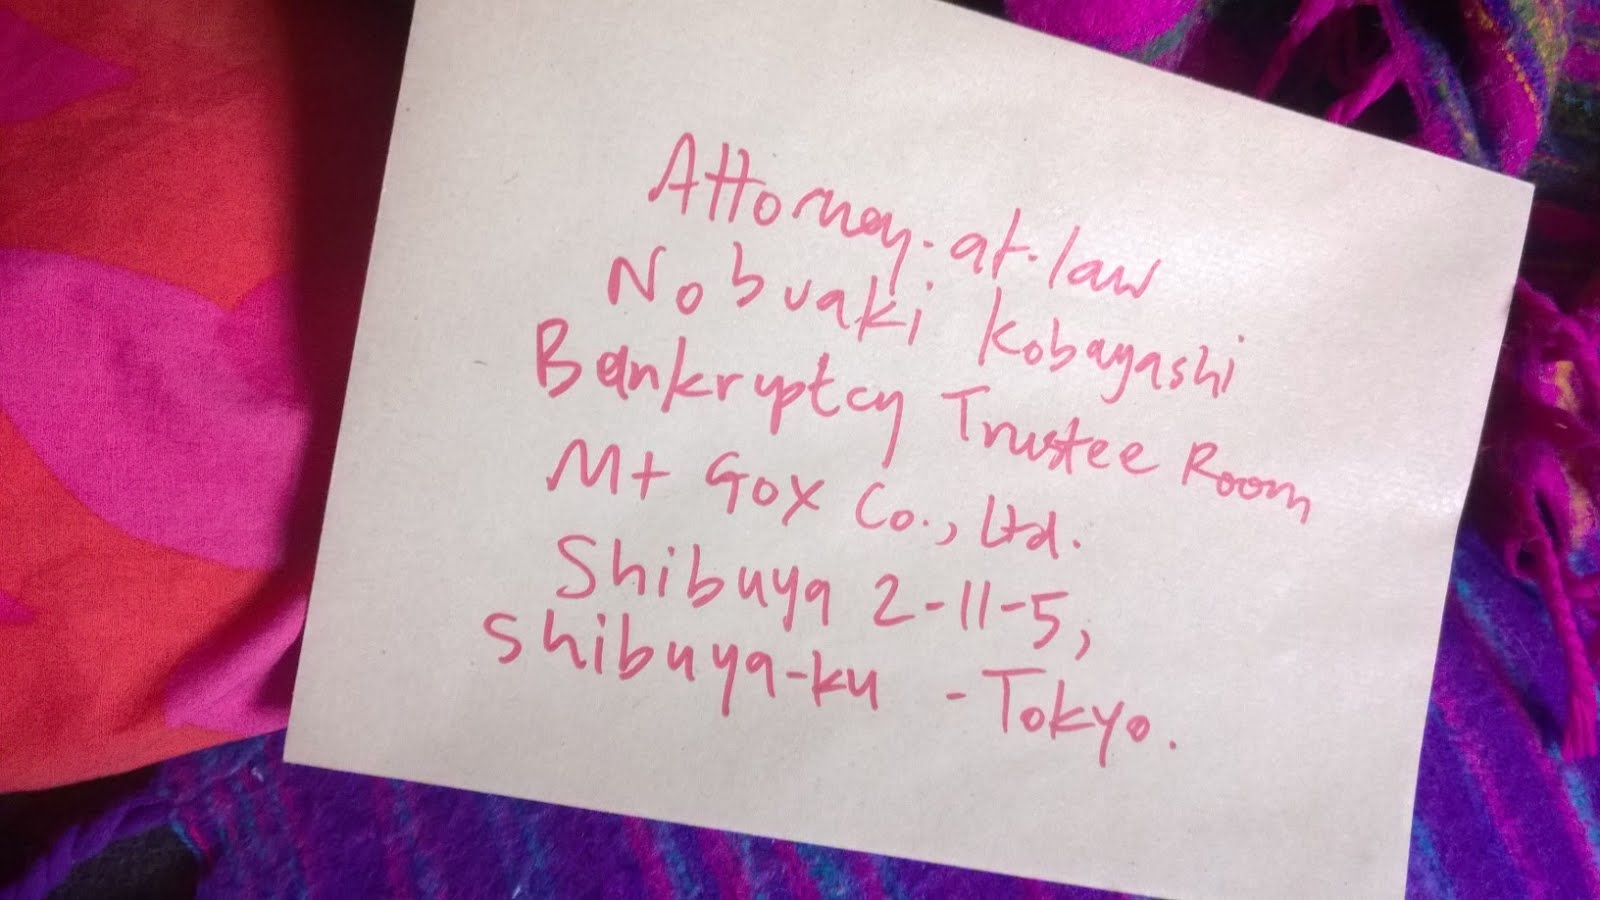 Attorney-at-law
Nobuaki Kobayashi
Bankryptcy Trustee Room
Mt Gox Co., Ltd.
Shibuya 2-11-5,
Shibuya-ku - Tokyo.